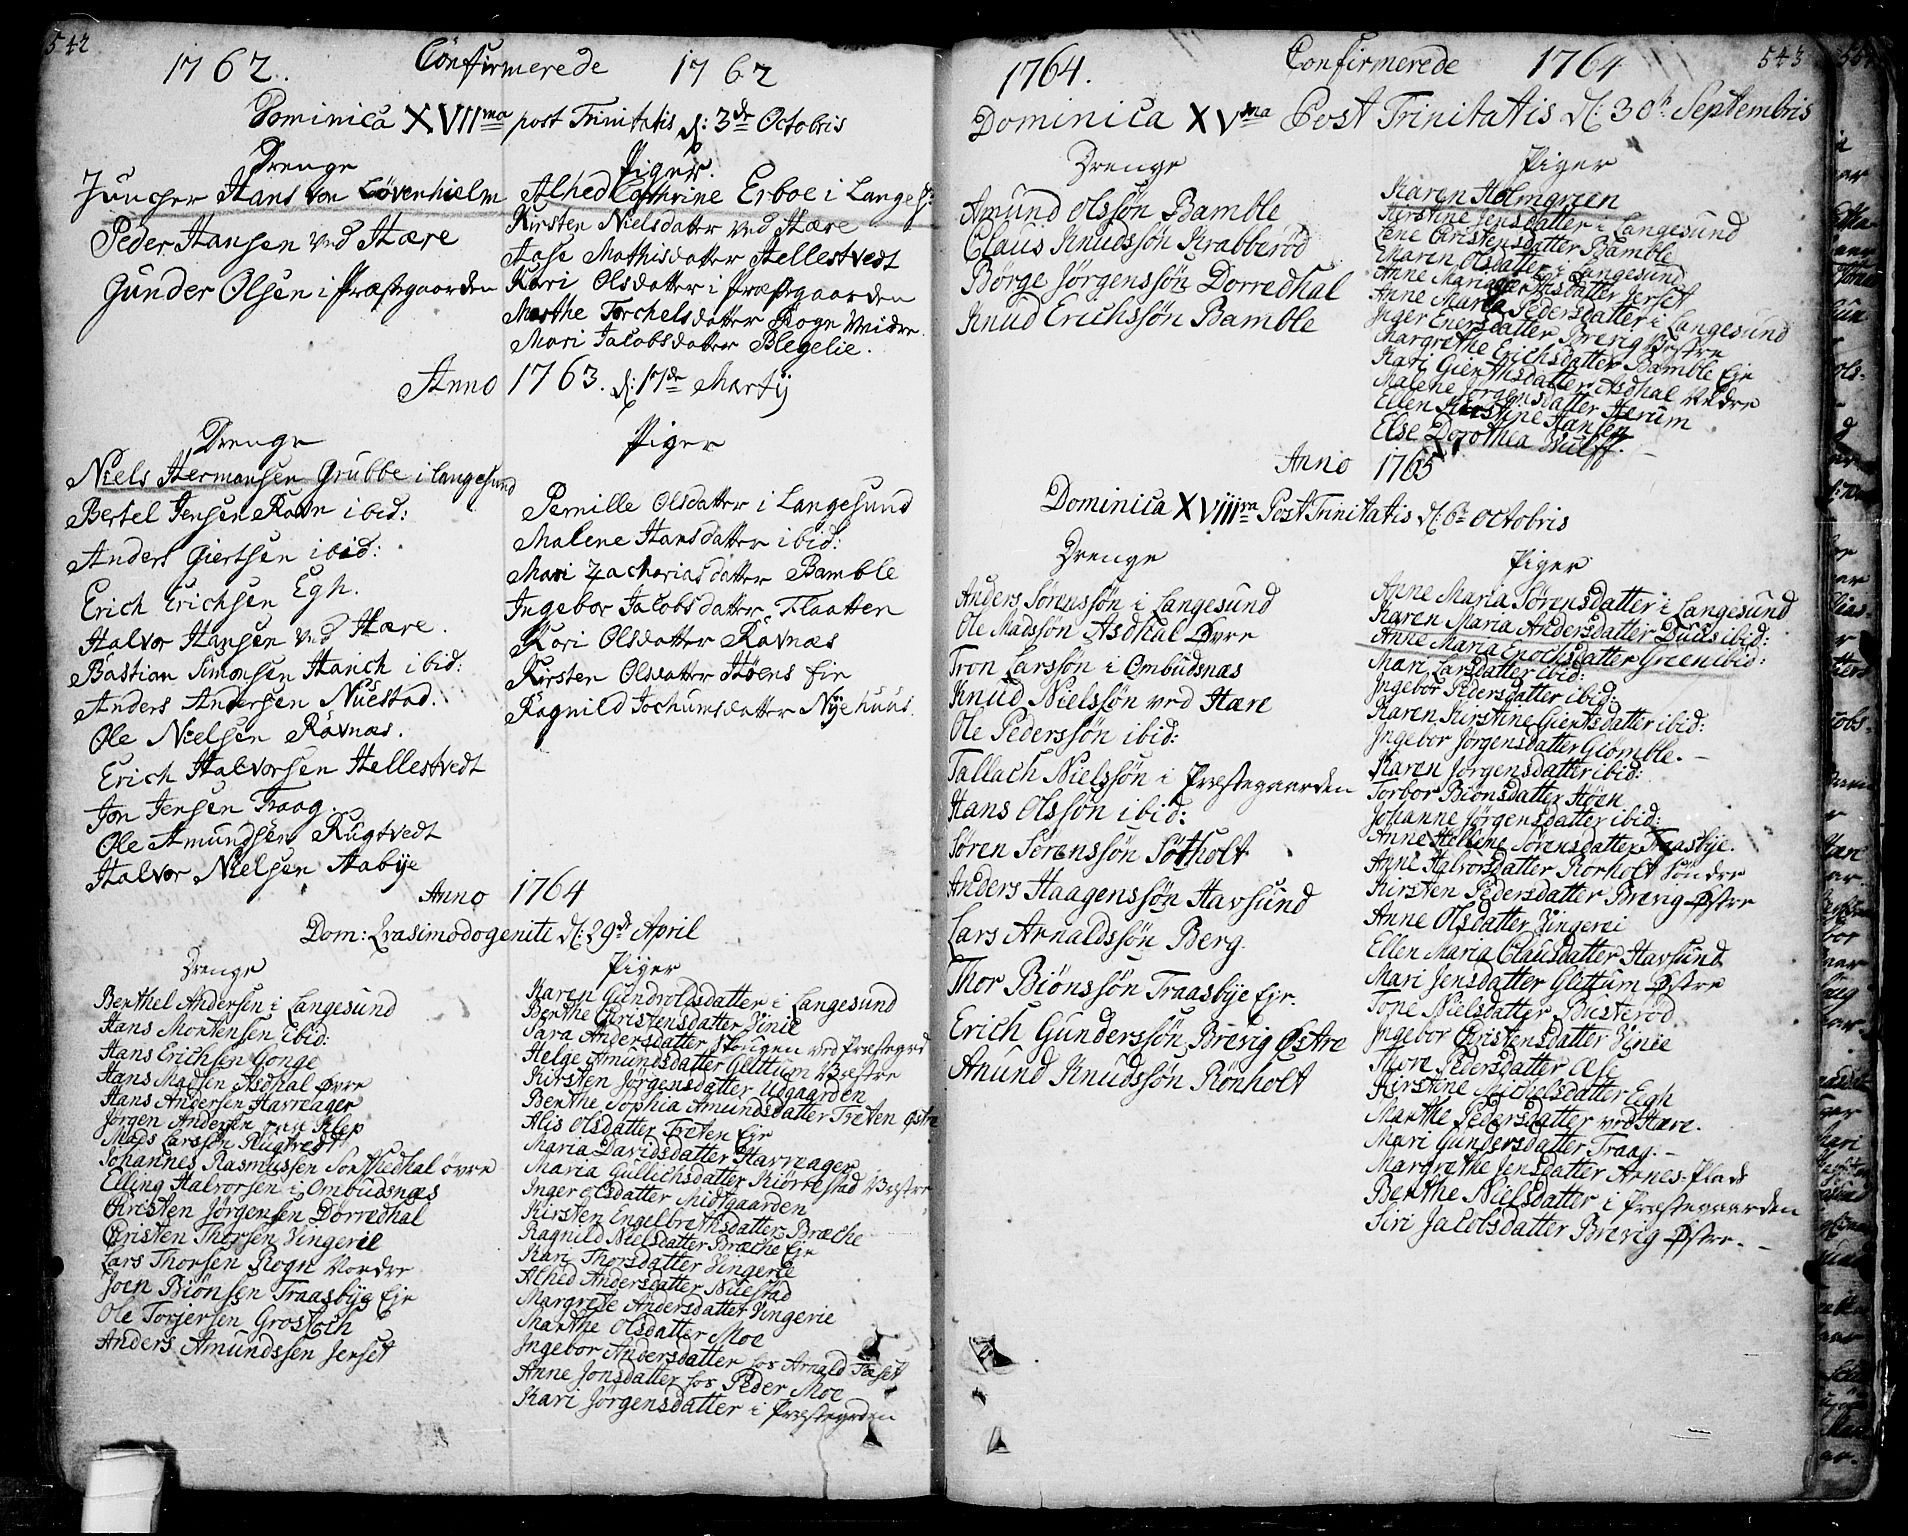 542
1762. Confirmerede 1762
Dominica XVII ma post Trinitatis d: 3de Octobris
Drenge
Juncher Hans von Lövenhielm
Peder Hansen ved Hære
Gunder Olsen i Præstegaarden
Piger.
Alhed Cathrine Erboe i Langes:
Kirsten Nielsdatter ved Hære
Aase Mathisdatter Hellestvedt
Kari Olsdatter i Præstegaarden
Marthe Torchelsdatter Rogn Weidre.
Mari Jacobsdatter Blegelie.
Anno 1763. d: 17de Martij
Drenge
Niels Hermansen Grubbe i Langesund
Bertel Jensen Ravn ibid:
Anders Giertsen ibid:
Erich Erichsen Egh.
Halvor Hansen ved Hære.
Bastian Simonsen Hanch ibid:
Anders Andersen Nuestad.
Ole Nielsen Råvnæs.
Erich Halvorsen Hellestvedt
Jon Jensen Traag.
Ole Amundsen Rugtvedt
Halvor Nielsen Aabye
Piger
Pernille Olsdatter i Langesund
Malene Hansdatter ibid:
Mari Zachariasdatter Bamble
Ingebor Jacobsdatter Flaatten
Kari Olsdatter Råvnæs
Kirsten Olsdatter Høens Eie
Ragnild Jochumsdatter Nyehuus.
Anno 1764
Dom: Qvasimodogeniti d: 29de April
Drenge
Berthel Andersen i Langesund
Hans Mortensen Ibid:
Hans Erichsen Gonge
Hans Madsen Asdhal Øvre
Hans Andersen Havreager
Jørgen Andersen Klep
Mads Larssen Rugtvedt
Johannes Rasmussen Sorthedhal övre
Elling Halvorsen i Ombudsnæs
Christen Jørgensen Dorredhal
Christen Thorsen Vingerie
Lars Thorsen Rogn Nordre
Joen Biönsen Traasbye Eje
Ole Torjersen Grostoch
Anders Amundssen Jerset
Piger
Karen Gundvoldsdatter i Langesund
Berthe Christensdatter Vinie
Sara Andersdatter Skougen ved Præstegrd
Helge Amundsdatter Glittum Vestre
Kirsten Jörgensdatter Udgaarden
Berthe Sophia Amundsdatter Treten Østre
Alis Olsdatter Treten Eje
Maria Davidsdatter Havreager
Maria Gullichsdatter Kiörrestad Vestre
Inger Olsdatter Midtgaarden
Kirsten Engelbrethsdatter Bræche
Ragnild Nielsdatter Bræche Eje
Kari Thorsdatter Vingerie
Alhed Andersdatter Nuestad
Margrete Andersdatter Vingerie
Marthe Olsdatter Moe
Ingebor Andersdatter hos Arnald Taset
Anne Jonsdatter hos Peder Moe
Kari Jørgensdatter i Præstegrden
543
1764. Confirmerede 1764
Dominica XV ma Post Trinitatis d: 30te Septembris
Drenge
Amund Olssøn Bamble
Claus Knudssøn Krabberöd
Börge Jörgenssøn Dorredhal
Knud Erichssøn Bamble
Piger
Karen Holmgreen
Kirstine Jensdatter i Langesund
Lene Christensdatter Bamble
Maren Olsdatter i Langesund
Anne Maria Giertsdatter Jerset
Anne Maria Pedersdatter i Langesund
Inger Enersdatter Brevig Vestre
Margrethe Erichsdatter Bamble Eje
Kari Gierthsdatter Asdhal Nedre
Malene Jørgensdatter Herum
Ellen Kirstine Hansen
Else Dorothea Wulff.
Anno 1765
Dominica XVIII va Post Trinitatis d: 6te Octobris
Drenge
Anders Sørenssøn i Langesund
Ole Madssøn Asdhal Øvre
Tron Larssøn i Ombudsnæs
Knud Nielssøn ved Hære
Ole Pederssøn ibid:
Tallach Nielssøn i Præstegaarden
Hans Olssøn ibid:
Sören Sörenssøn Sötholt
Anders Haagenssøn Havsund
Lars Arnaldssøn Berg.
Thor Biönssøn Traasbye Eje.
Erich Gunderssøn Brevig Østre
Anund Knudssøn Rönholt
Piger
Anne Maria Sørensdatter i Langesund
Karen Maria Andersdatter Duus ibid:
Anne Maria Enochsdatter Green ibid:
Mari Larsdatter ibid:
Ingebor Pedersdatter ibid:
Karen Kirstine Giertsdatter ibid:
Ingebor Jørgensdatter Giomble.
Karen Jørgensdatter ibid:
Torbor Biönsdatter Høen
Johanne Jørgensdatter ibid:
Anne Hellene Sörensdatter Traasbye.
Anne Halvorsdatter Rorholt Söndre
Kirsten Pedersdatter Brevig Østre
Anne Olsdatter Vingerei
Ellen Maria Clausdatter Havsund
Mari Jensdatter Glittum Østre
Tone Nielsdatter Busteröd.
Ingebor Christensdatter Vinie
Thore Pedersdatter Ose
Kirstine Michelsdatter Egh
Marthe Pedersdatter ved Hære.
Mari Gundersdatter Traag.
Margrethe Jensdatter Arnes-Plads
Berthe Nielsdatter i Præstegaarden
Siri Jacobsdatter Brevig Østre.